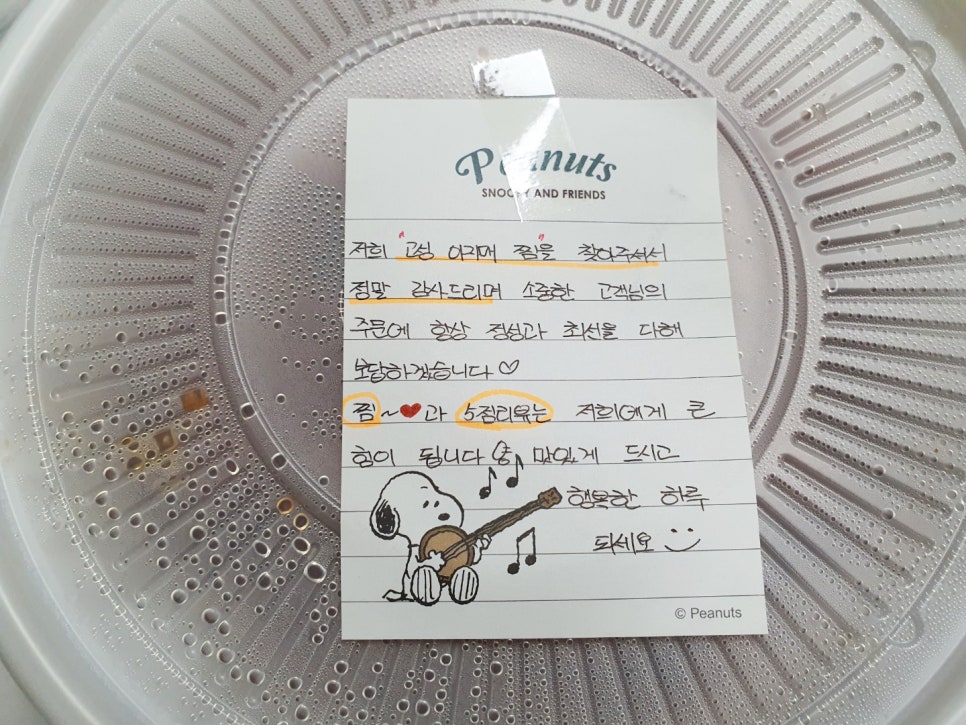 Peanuts
SNOOPY AND FRIENDS
저희 "고싱 아지매 찜"을 찾아주셔서
정말 감사드리며 소중한 고객님의
주문에 항상 정성과 최선을 다해
보답하겠습니다♡
찜~♥과 5점리뷰는 저희에게 큰
힘이 됩니다 맛있게 드시고
행복한 하루
되세요
© Peanuts